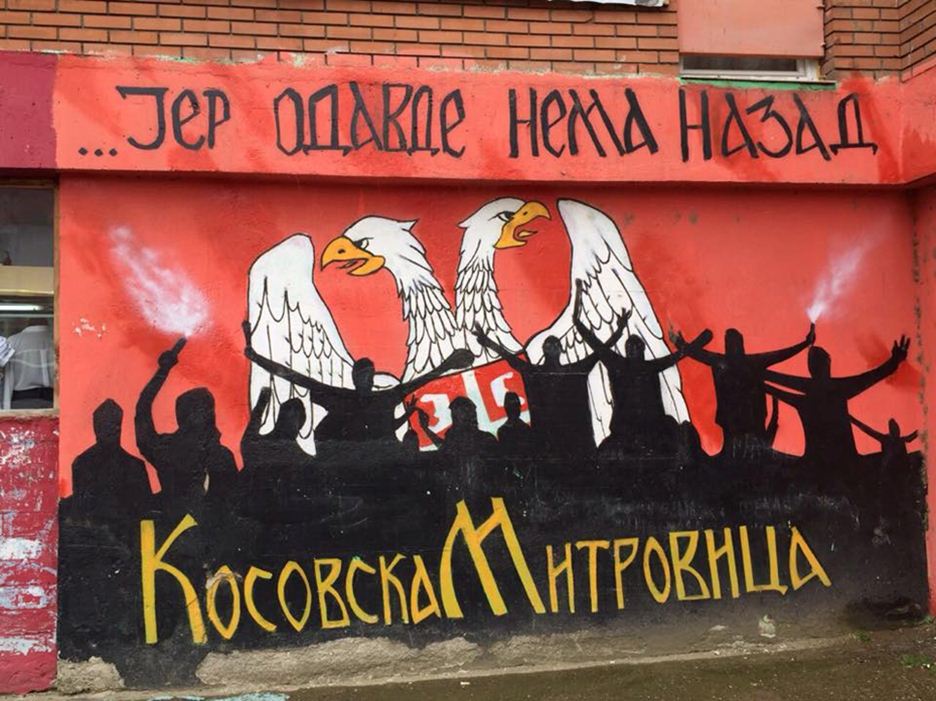 ...ЈЕР ОДАВДЕ НЕМА НАЗАД
КОСОВСКА МИТРОВИЦА